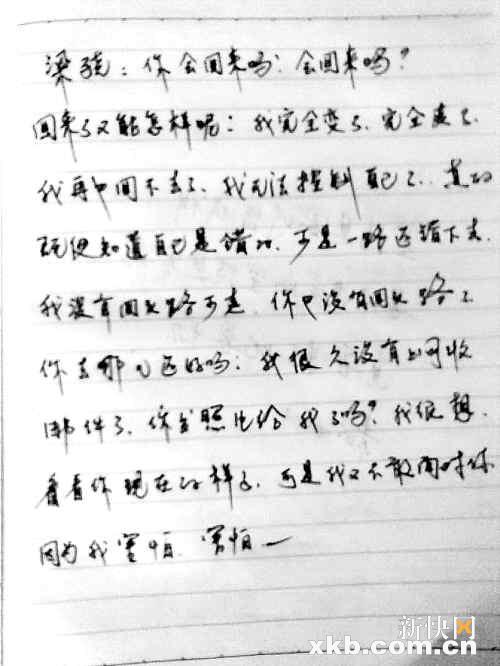 梁骁：你会回来吗？会回来吗？
回来了又能怎样呢？我完全变了、完全变了、
我再也回不去了、我无法控制自己了、真的
既便知道自己是错的、可是一路还错下去、
我没有回头路可走、你也没有回头路了、
你去哪儿还好吗？我很久没有上网收
邮件了、你发照片给我了吗？我很想、
看看你现在的样子、可是我又不敢面对你
因为我害怕、害怕—
新快网
xkb.com.cn